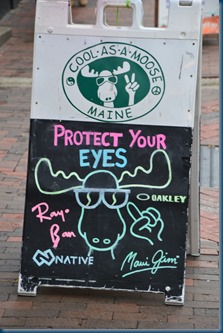 COOL-AS-A-MOOSE
MAINE
PROTECT YOUR
EYES
OAKLEY
Ray-
Ban
NATIVE
Maui Jim